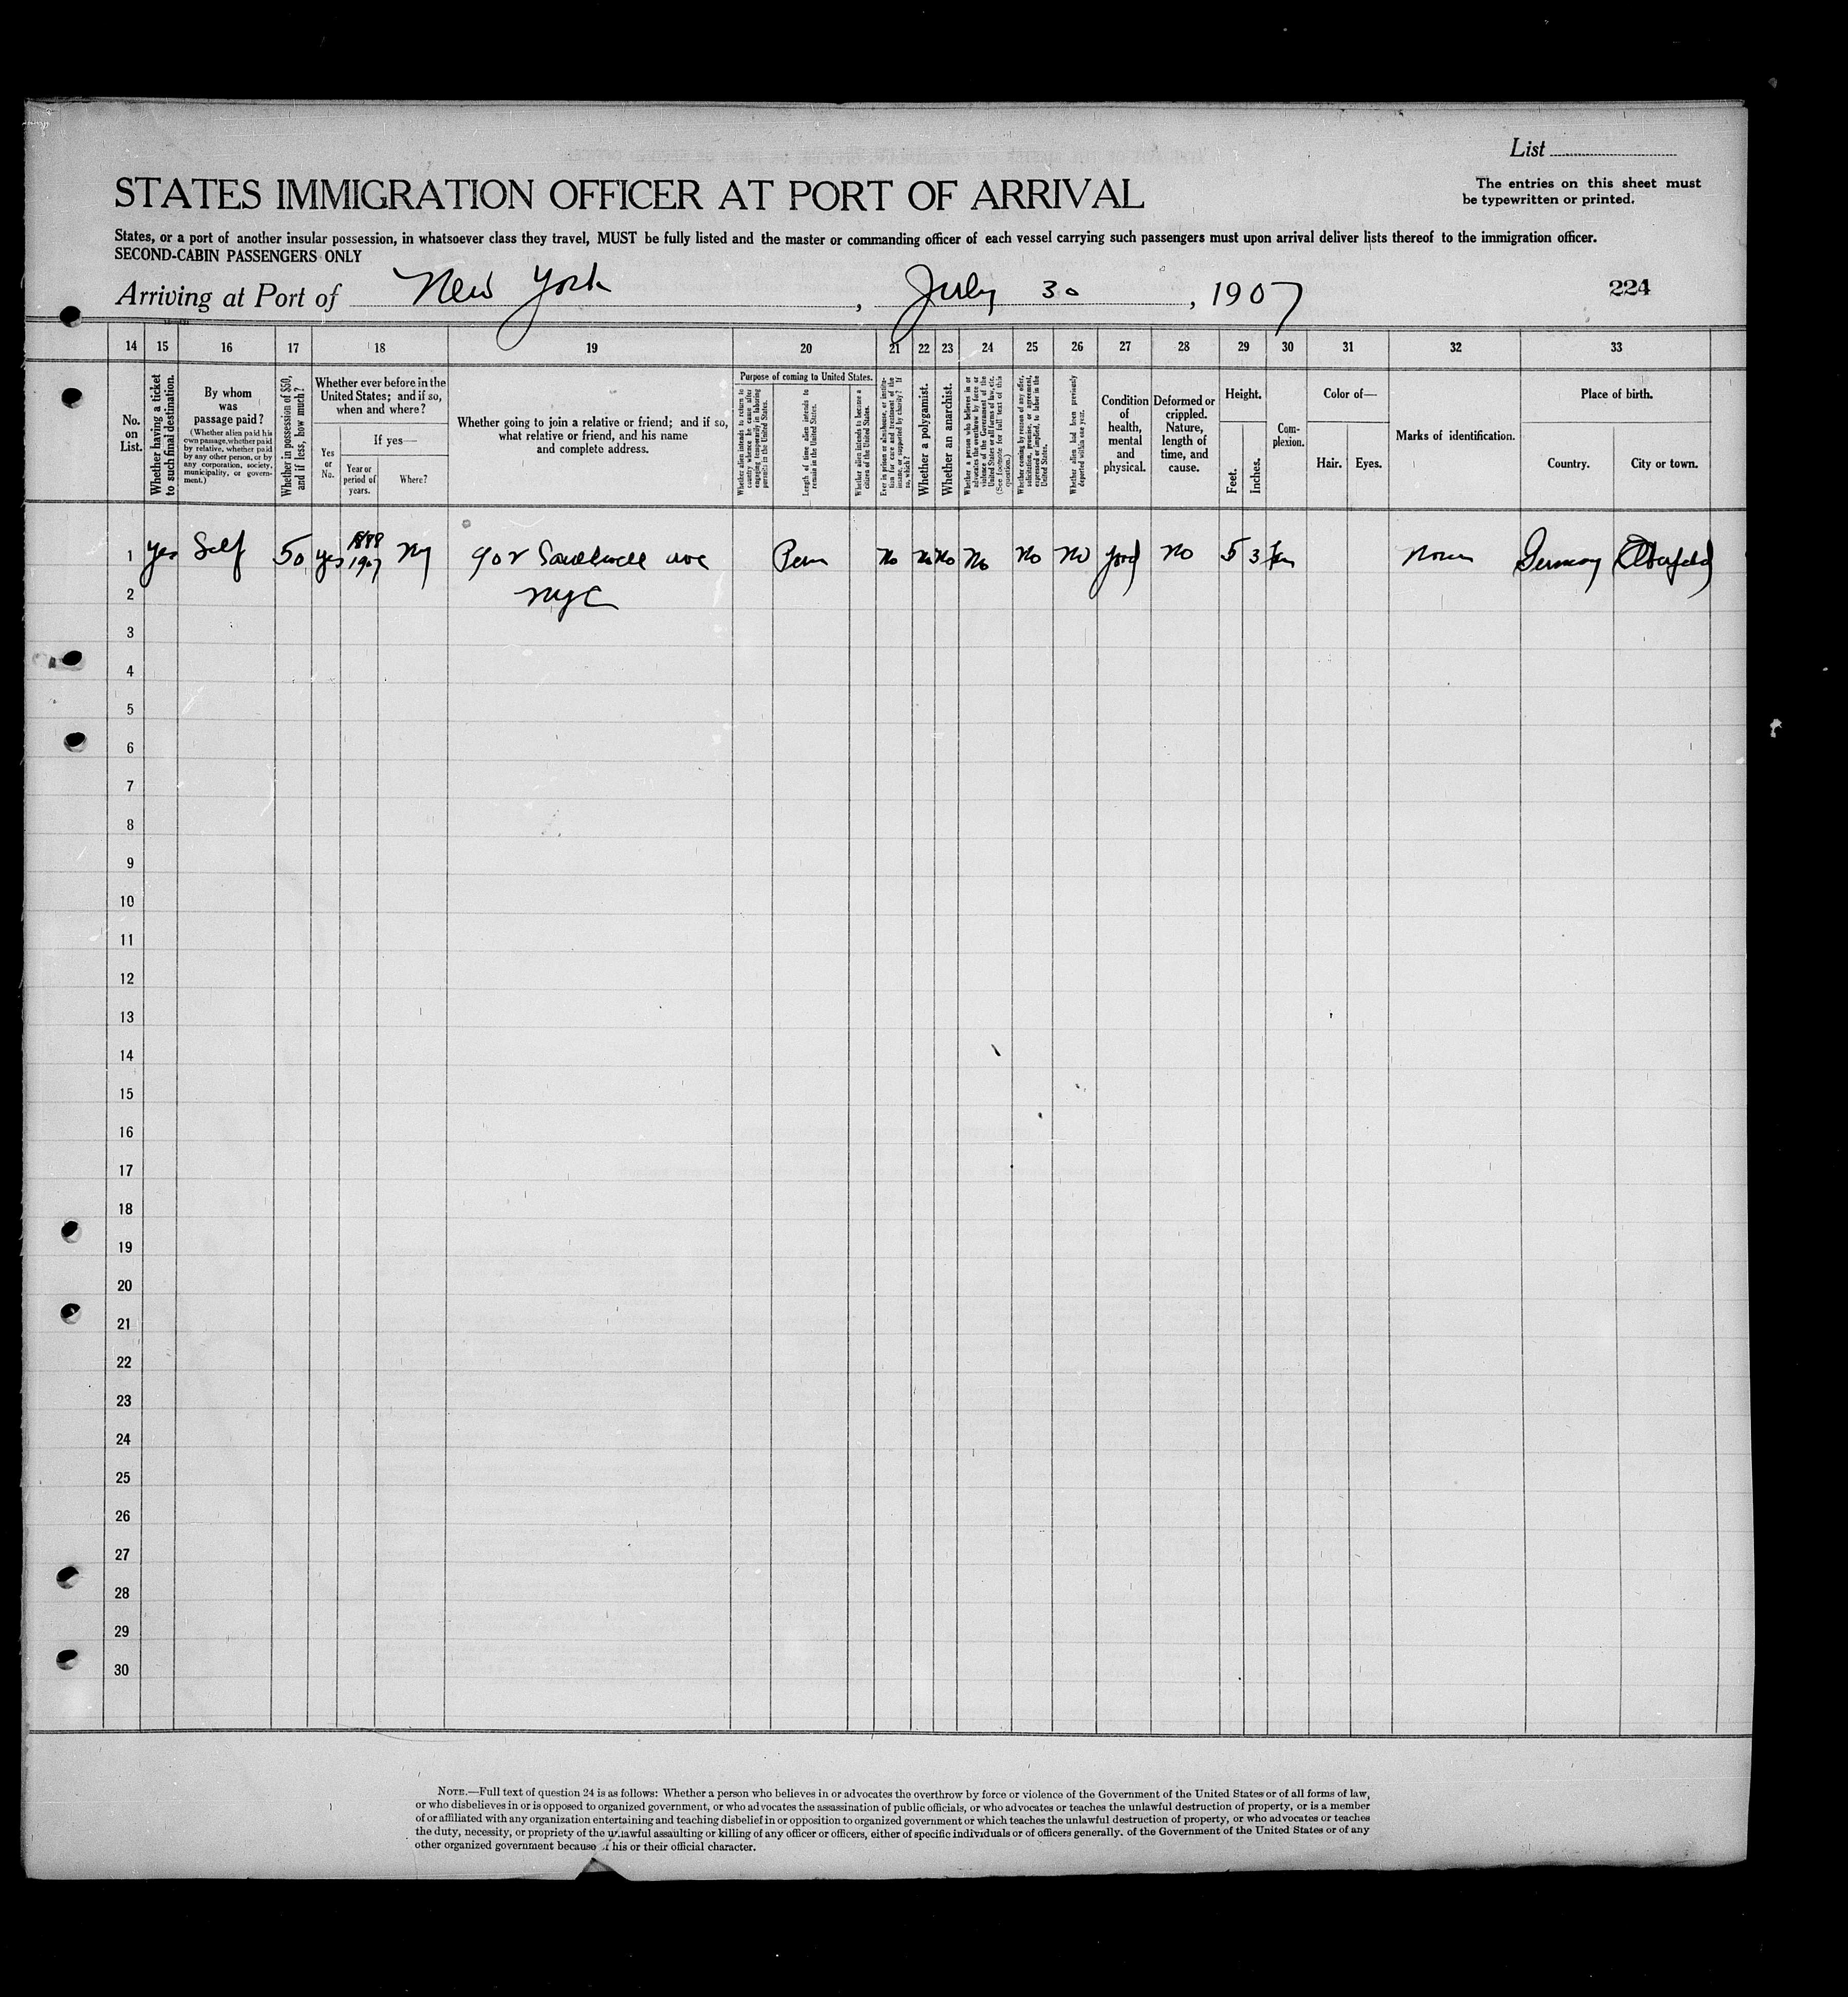 List
STATES IMMIGRATION OFFICER AT PORT OF ARRIVAL
The entries on this sheet must
be typewritten or printed.
States, or a port of another insular possession, in whatsoever class they travel, MUST be fully listed and the master or commanding officer of each vessel carrying such passengers must upon arrival deliver lists thereof to the immigration officer.
SECOND-CABIN PASSENGERS ONLY
Arriving at Port of New York, July 30, 1907
224
14 15 16 17 18 19 20 21 22 23 24 25 26 27 28 29 30 31 32 33
No. on List.
Whether having a ticket to such final destination.
By whom was passage paid?
(Whether alien paid his own passage, whether paid by relative, whether paid by any other person, or by any corporation, society, municipality, or government.)
Whether in possession of $50, and if less, how much?
Whether ever before in the United States; and if so, when and where?
Yes or No.
If yes—
Year or period of years.
Where?
Whether going to join a relative or friend; and if so, what relative or friend, and his name and complete address.
Purpose of coming to United States.
Whether alien intends to return to country whence he came after engaging temporarily in laboring pursuits in the United States.
Length of time alien intends to remain in the United States.
Whether alien intends to become a citizen of the United States.
Ever in prison or almshouse, or institution for care and treatment of the insane, or supported by charity? If so, which?
Whether a polygamist.
Whether an anarchist.
Whether a person who believes in or advocates the overthrow by force or violence of the Government of the United States or all forms of law, etc. (See footnote for full text of this question.)
Whether coming by reason of any offer, solicitation, promise, or agreement, expressed or implied, to labor in the United States.
Whether alien had been previously deported within one year.
Condition of health, mental and physical.
Deformed or crippled. Nature, length of time, and cause.
Height.
Feet.
Inches.
Complexion.
Color of—
Hair.
Eyes.
Marks of identification.
Place of birth.
Country.
City or town.
1 yes Self 50 yes 1907 NY 902 ave Perm No No No No No No good No 5 3 None Germany
2 NYC
3
4
5
6
7
8
9
10
11
12
13
14
15
16
17
18
19
20
21
22
23
24
25
26
27
28
29
30
NOTE.—Full text of question 24 is as follows: Whether a person who believes in or advocates the overthrow by force or violence of the Government of the United States or of all forms of law,
or who disbelieves in or is opposed to organized government, or who advocates the assassination of public officials, or who advocates or teaches the unlawful destruction of property, or is a member
of or affiliated with any organization entertaining and teaching disbelief in or opposition to organized government or which teaches the unlawful destruction of property, or who advocates or teaches
the duty, necessity, or propriety of the unlawful assaulting or killing of any officer or officers, either of specific individuals or of officers generally. of the Government of the United States or of any
other organized government because of his or their official character.